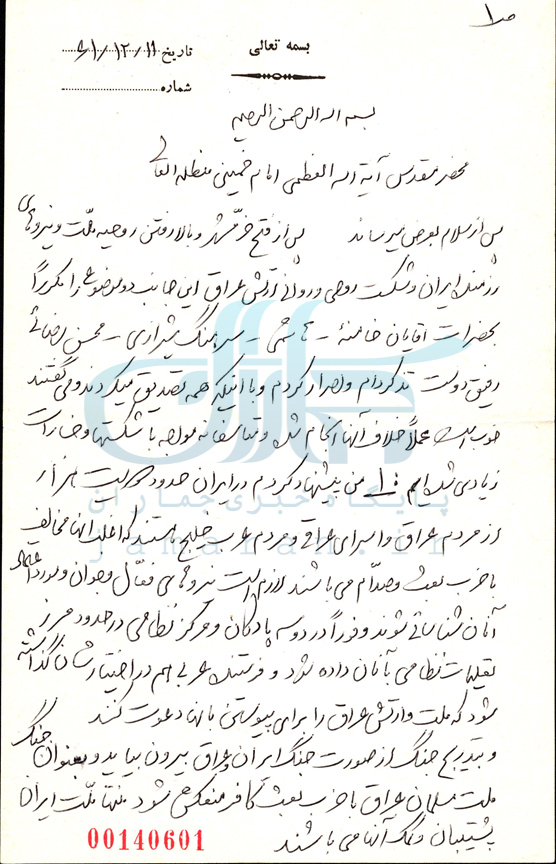 ص ۱
بسمه تعالی
تاریخ ۶۱/۱۲/۱۱
شماره
بسم الله الرحمن الرحیم
محضر مقدس آیة الله العظمی امام خمینی مدظله العالی
پس از سلام بعرض میرساند پس از فتح خرمشهر و بالا رفتن روحیه ملت و نیروهای
رزمنده ایران و شکست روحی و روانی ارتش عراق این جانب دو موضوع را مکرراً
بحضرات آقایان خامنه‌ای - هاشمی - سرهنگ شیرازی - محسن رضائی
رفیق دوست تذکر دادم و اصرار کردم و با اینکه همه تصدیق میکردند و می گفتند
خوب است عملاً خلاف آنها انجام شد و متأسفانه مواجه با شکستها و خسارات
زیادی شده‌ایم : ۱ـ من پیشنهاد کردم در ایران حدود دویست هزار
از مردم عراق و اسرای عراقی و مردم عرب خلیج هستند که اغلب آنها مخالف
با حزب بعث و صدام می باشند لازم است نیروهای فعال و جوان و مورد اعتماد
آنان شناسائی شوند و فوراً در دو سه پادگان و مرکز نظامی در حدود مرز
تعلیمات نظامی بآنان داده شود و فرستنده عربی هم در اختیارشان گذاشته
شود که ملت و ارتش عراق را برای پیوستن بآنها دعوت کنند
و بتدریج جنگ از صورت جنگ ایران و عراق بیرون بیاید و بعنوان جنگ
ملت مسلمان عراق با حزب بعث کافر منعکس می شود منتها ملت ایران
پشتیبان و کمک آنها می باشند
جماران
پایگاه خبری جماران
jamaran.ir
00140601